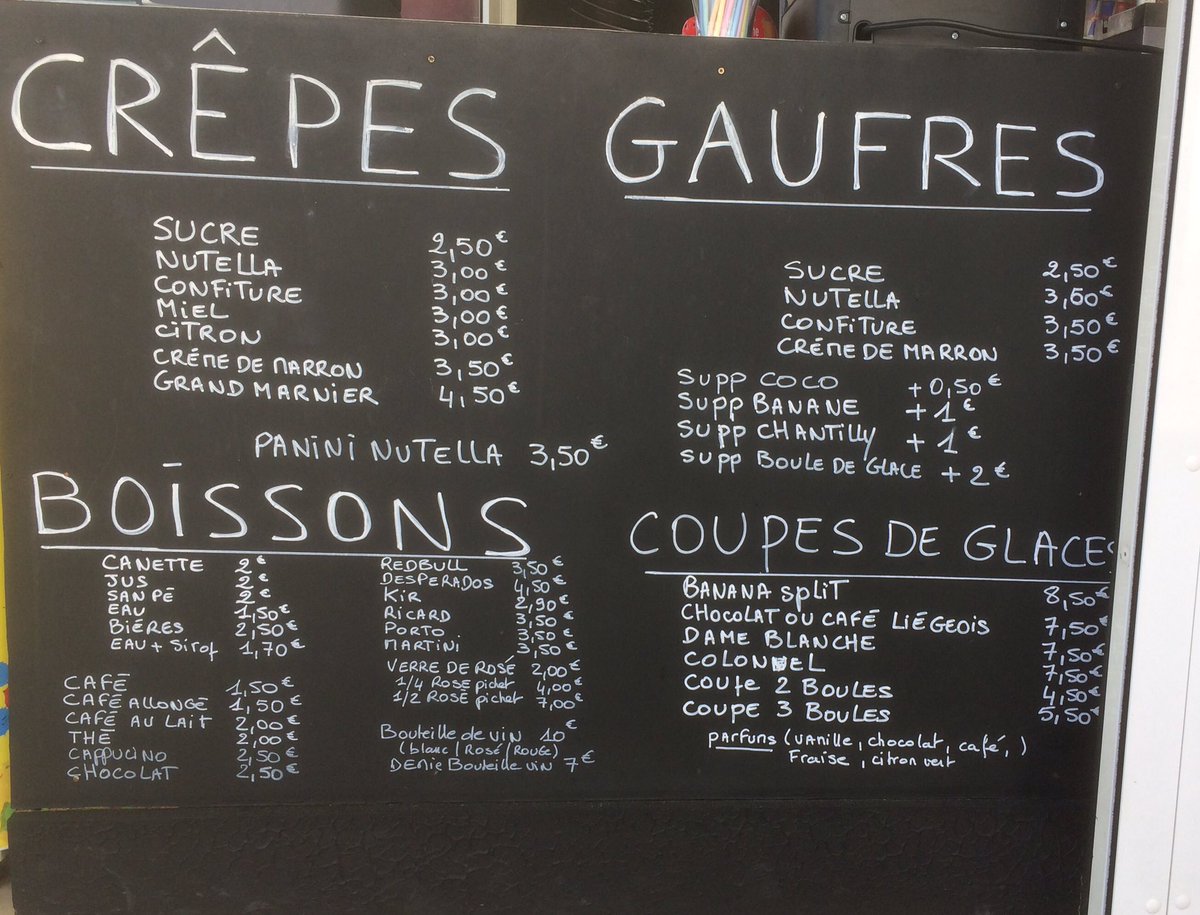 CRÊPES
SUCRE 2,50€
NUTELLA 3,00€
CONFITURE 3,00€
MIEL 3,00€
CITRON 3,00€
CRÉME DE MARRON 3,50€
GRAND MARNIER 4,50€
PANINI NUTELLA 3,50€
GAUFRES
SUCRE 2,50€
NUTELLA 3,60€
CONFITURE 3,50€
CRÉME DE MARRON 3,50€
SUPP COCO +0,50€
SUPP BANANE +1€
SUPP CHANTILLY +1€
SUPP BOULE DE GLACE +2€
BOISSONS
CANETTE 2€
JUS 2€
SAN PÉ 2€
EAU 1,50€
BIÉRES 2,50€
EAU + SIROP 1,70€
CAFÉ 1,50€
CAFÉ ALLONGÉ 1,50€
CAFÉ AU LAIT 2,00€
THÉ 2,00€
CAPPUCINO 2,50€
CHOCOLAT 2,50€
REDBULL 3,50€
DESPERADOS 4,50€
KIR 2,90€
RICARD 3,50€
PORTO 3,50€
MARTINI 3,50€
VERRE DE ROSÉ 2,00€
1/4 ROSE pichet 4,00€
1/2 ROSÉ pichet 7,00€
Bouteille de vin 10€
(blanc/ROSÉ/ROUGE)
DEMIE Bouteille vin 7€
COUPES DE GLACES
BANANA SPLIT 8,50€
CHOCOLAT OU CAFÉ LIÉGEOIS 7,50€
DAME BLANCHE 7,50€
COLONEL 7,50€
COUPE 2 BOULES 4,50€
COUPE 3 BOULES 5,50€
PARFUMS (VANILLE, chocolat, café,)
Fraise, citron vert